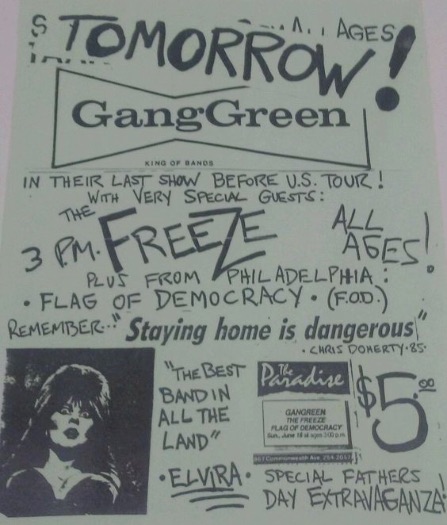 TOMORROW!
ALL AGES
GangGreen
KING OF BANDS
IN THEIR LAST SHOW BEFORE U.S. TOUR!
WITH VERY SPECIAL GUESTS:
THE
3 P.M. FREEZE
ALL
AGES!
PLUS FROM PHILADELPHIA:
• FLAG OF DEMOCRACY • (F.O.D.)
REMEMBER... "Staying home is dangerous"
• CHRIS DOHERTY • 85 •
"THE BEST
BAND IN
ALL THE
LAND"
• ELVIRA •
The
Paradise
GANGREEN
THE FREEZE
FLAG OF DEMOCRACY
967 Commonwealth Ave
$5.00
SPECIAL FATHERS
DAY EXTRAVAGANZA!